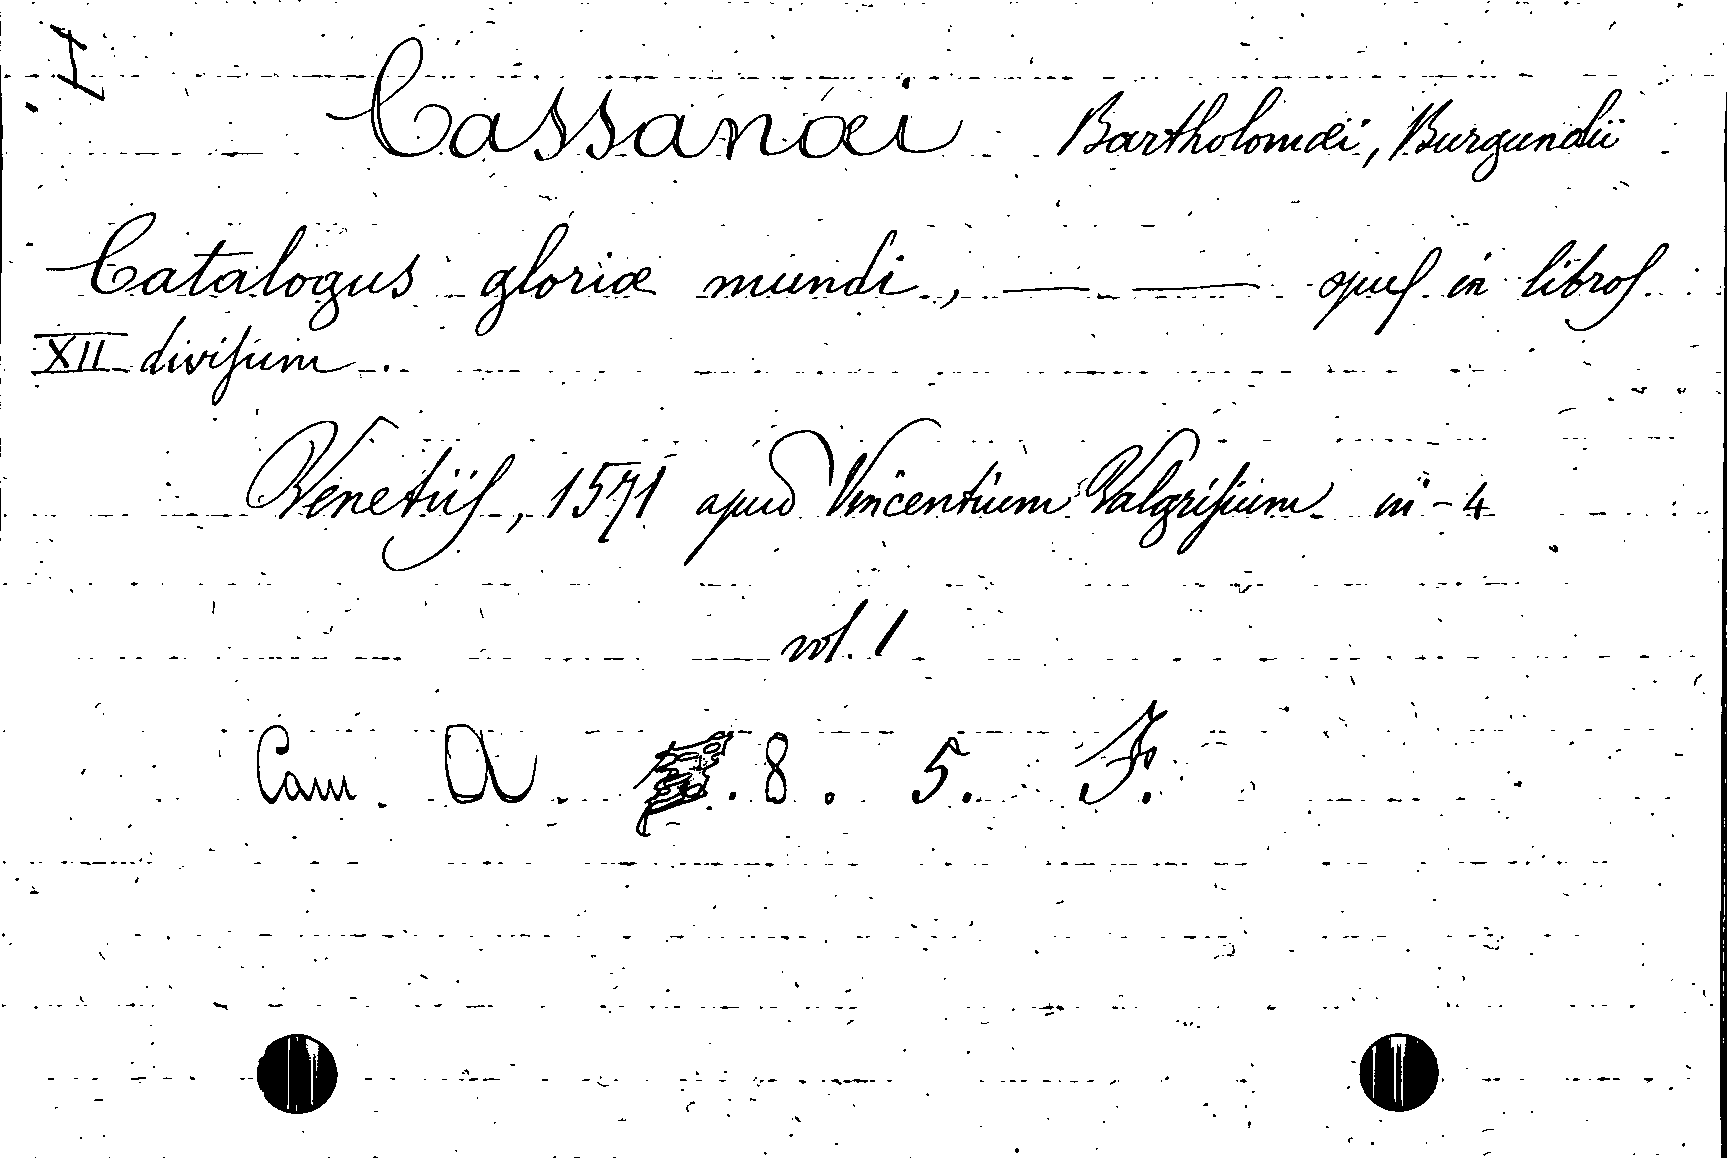 Cassanæi Bartholomæi, Burgundii
Catalogus gloriæ mundi, — — opus in libros
XII divisum.
Venetiis, 1571 apud Vincentium Valgrisium in-4
vol. 1
Cam. A . 8. 5. F.